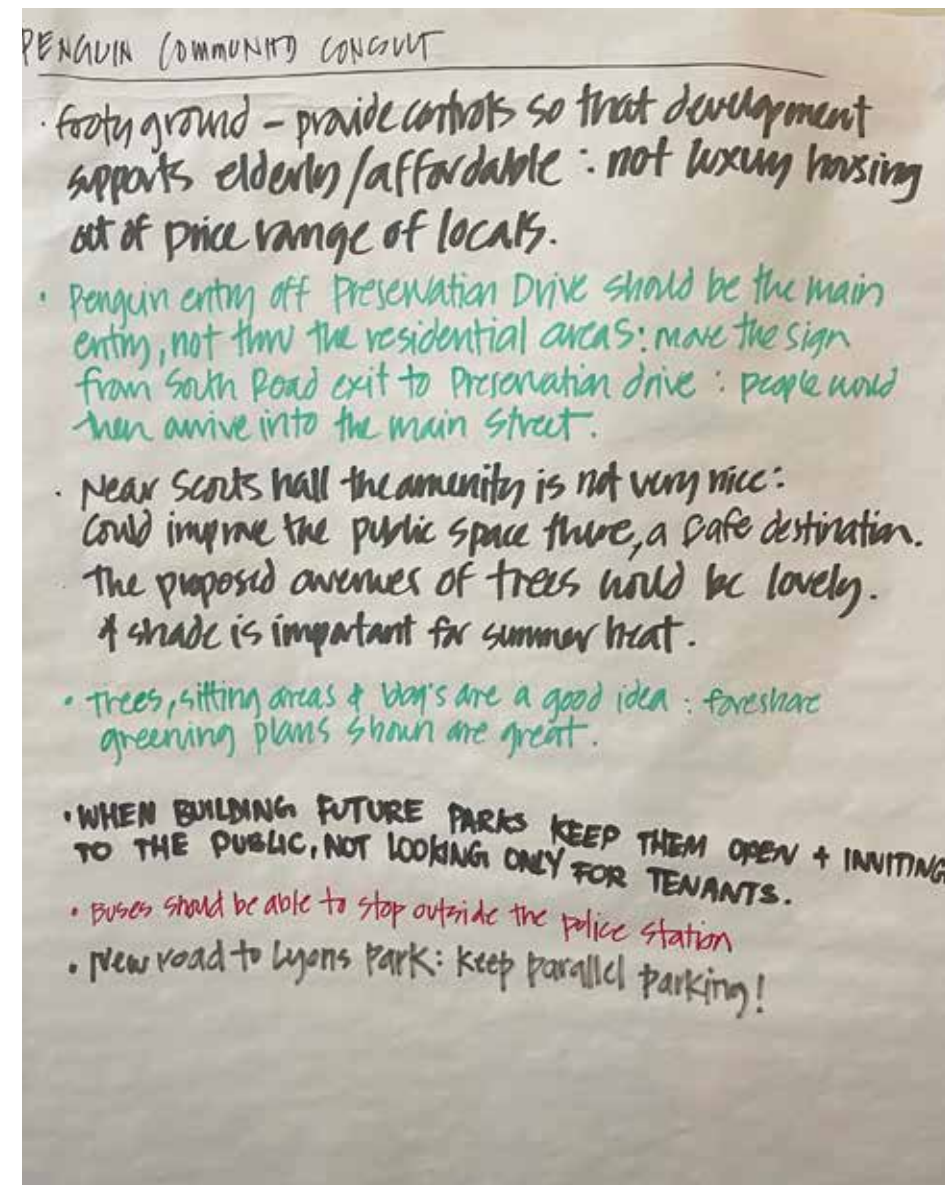 PENGUIN COMMUNITY CONSULT
· footy ground – provide controls so that development
supports elderly/affordable : not luxury housing
out of price range of locals.
· Penguin entry off Preservation Drive should be the main
entry, not thru the residential areas: move the sign
from South Road exit to Preservation drive : people would
then arrive into the main street.
· Near Scouts hall the amenity is not very nice:
Could improve the public space there, a cafe destination.
The proposed avenues of trees would be lovely.
& shade is important for summer heat.
· Trees, sitting areas & bbq's are a good idea : foreshore
greening plans shown are great.
· WHEN BUILDING FUTURE PARKS KEEP THEM OPEN + INVITING
TO THE PUBLIC, NOT LOOKING ONLY FOR TENANTS.
· Buses should be able to stop outside the police station
· New road to Lyons Park: keep parallel parking!